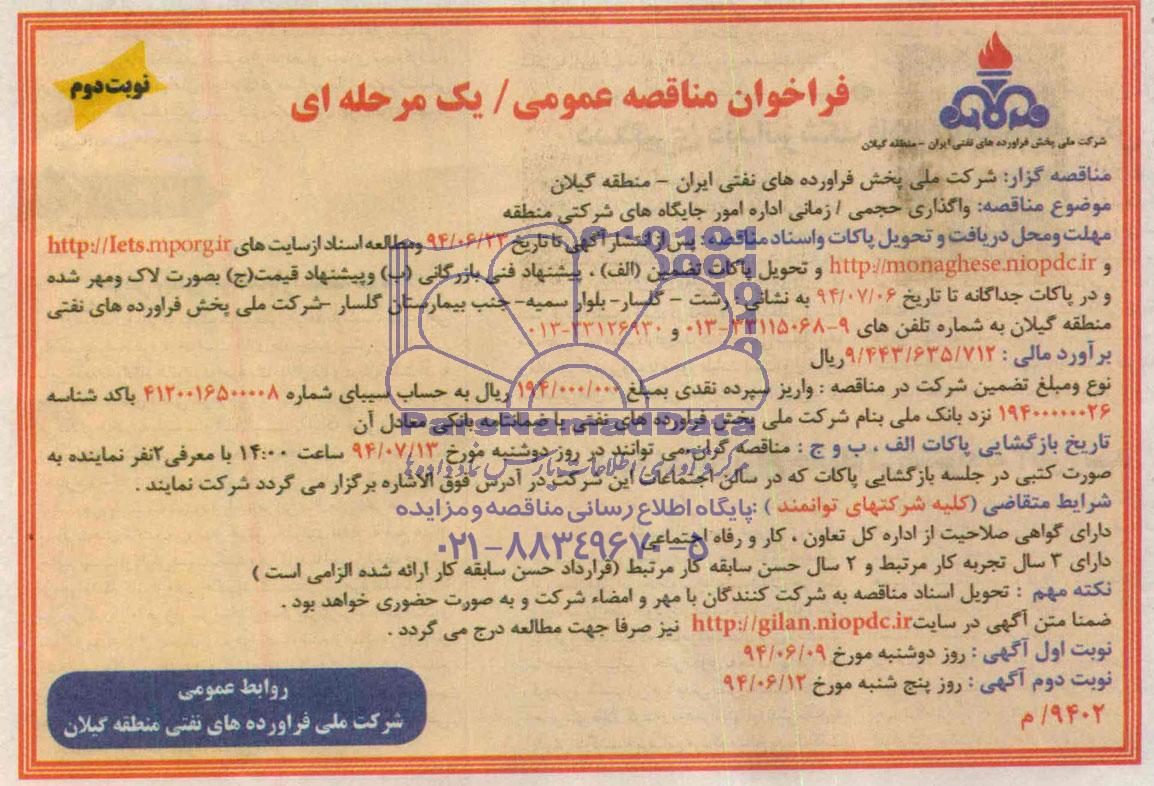 نوبت دوم
فراخوان مناقصه عمومی / یک مرحله ای
شرکت ملی پخش فراورده های نفتی ایران - منطقه گیلان
مناقصه گزار: شرکت ملی پخش فراورده های نفتی ایران - منطقه گیلان
موضوع مناقصه: واگذاری حجمی / زمانی اداره امور جایگاه های شرکتی منطقه
مهلت ومحل دریافت و تحویل پاکات واسناد مناقصه: پس از انتشار آگهی تا تاریخ ۹۴/۰۶/۲۳ ومطالعه اسناد از سایت های http://Iets.mporg.ir
و http://monaghese.niopdc.ir و تحویل پاکات تضمین (الف) ، پیشنهاد فنی بازرگانی (ب) وپیشنهاد قیمت(ج) بصورت لاک ومهر شده
و در پاکات جداگانه تا تاریخ ۹۴/۰۷/۰۶ به نشانی: رشت - گلسار- بلوار سمیه- جنب بیمارستان گلسار -شرکت ملی پخش فراورده های نفتی
منطقه گیلان به شماره تلفن های ۹-۳۳۱۱۵۰۶۸-۰۱۳ و ۳۳۱۲۶۹۳۰-۰۱۳
برآورد مالی : ۹/۴۴۳/۶۳۵/۷۱۲ریال
نوع ومبلغ تضمین شرکت در مناقصه : واریز سپرده نقدی بمبلغ ۱۹۴/۰۰۰/۰۰۰ ریال به حساب سیبای شماره ۴۱۲۰۰۱۶۵۰۰۰۰۸ باکد شناسه
۱۹۴۰۰۰۰۰۰۲۶ نزد بانک ملی بنام شرکت ملی پخش فراورده های نفتی یا ضمانتنامه بانکی معادل آن
تاریخ بازگشایی پاکات الف ، ب و ج : مناقصه گران می توانند در روز دوشنبه مورخ ۹۴/۰۷/۱۳ ساعت ۱۴:۰۰ با معرفی۲نفر نماینده به
صورت کتبی در جلسه بازگشایی پاکات که در سالن اجتماعات این شرکت در آدرس فوق الاشاره برگزار می گردد شرکت نمایند .
شرایط متقاضی (کلیه شرکتهای توانمند ) :
پایگاه اطلاع رسانی مناقصه و مزایده
دارای گواهی صلاحیت از اداره کل تعاون ، کار و رفاه اجتماعی
۰۲۱-۸۸۳۴۹۶۷۰-۵
دارای ۳ سال تجربه کار مرتبط و ۲ سال حسن سابقه کار مرتبط (قرارداد حسن سابقه کار ارائه شده الزامی است )
نکته مهم : تحویل اسناد مناقصه به شرکت کنندگان با مهر و امضاء شرکت و به صورت حضوری خواهد بود .
ضمنا متن آگهی در سایت http://gilan.niopdc.ir نیز صرفا جهت مطالعه درج می گردد .
نوبت اول آگهی : روز دوشنبه مورخ ۹۴/۰۶/۰۹
نوبت دوم آگهی : روز پنج شنبه مورخ ۹۴/۰۶/۱۲
۹۴۰۲/ م
روابط عمومی
شرکت ملی فراورده های نفتی منطقه گیلان
ParsNamadData